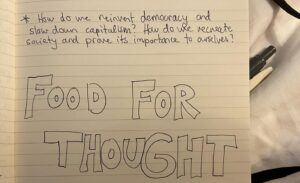 * How do we reinvent democracy and
slow down capitalism? How do we recreate
society and prove its importance to ourselves?
FOOD FOR
THOUGHT